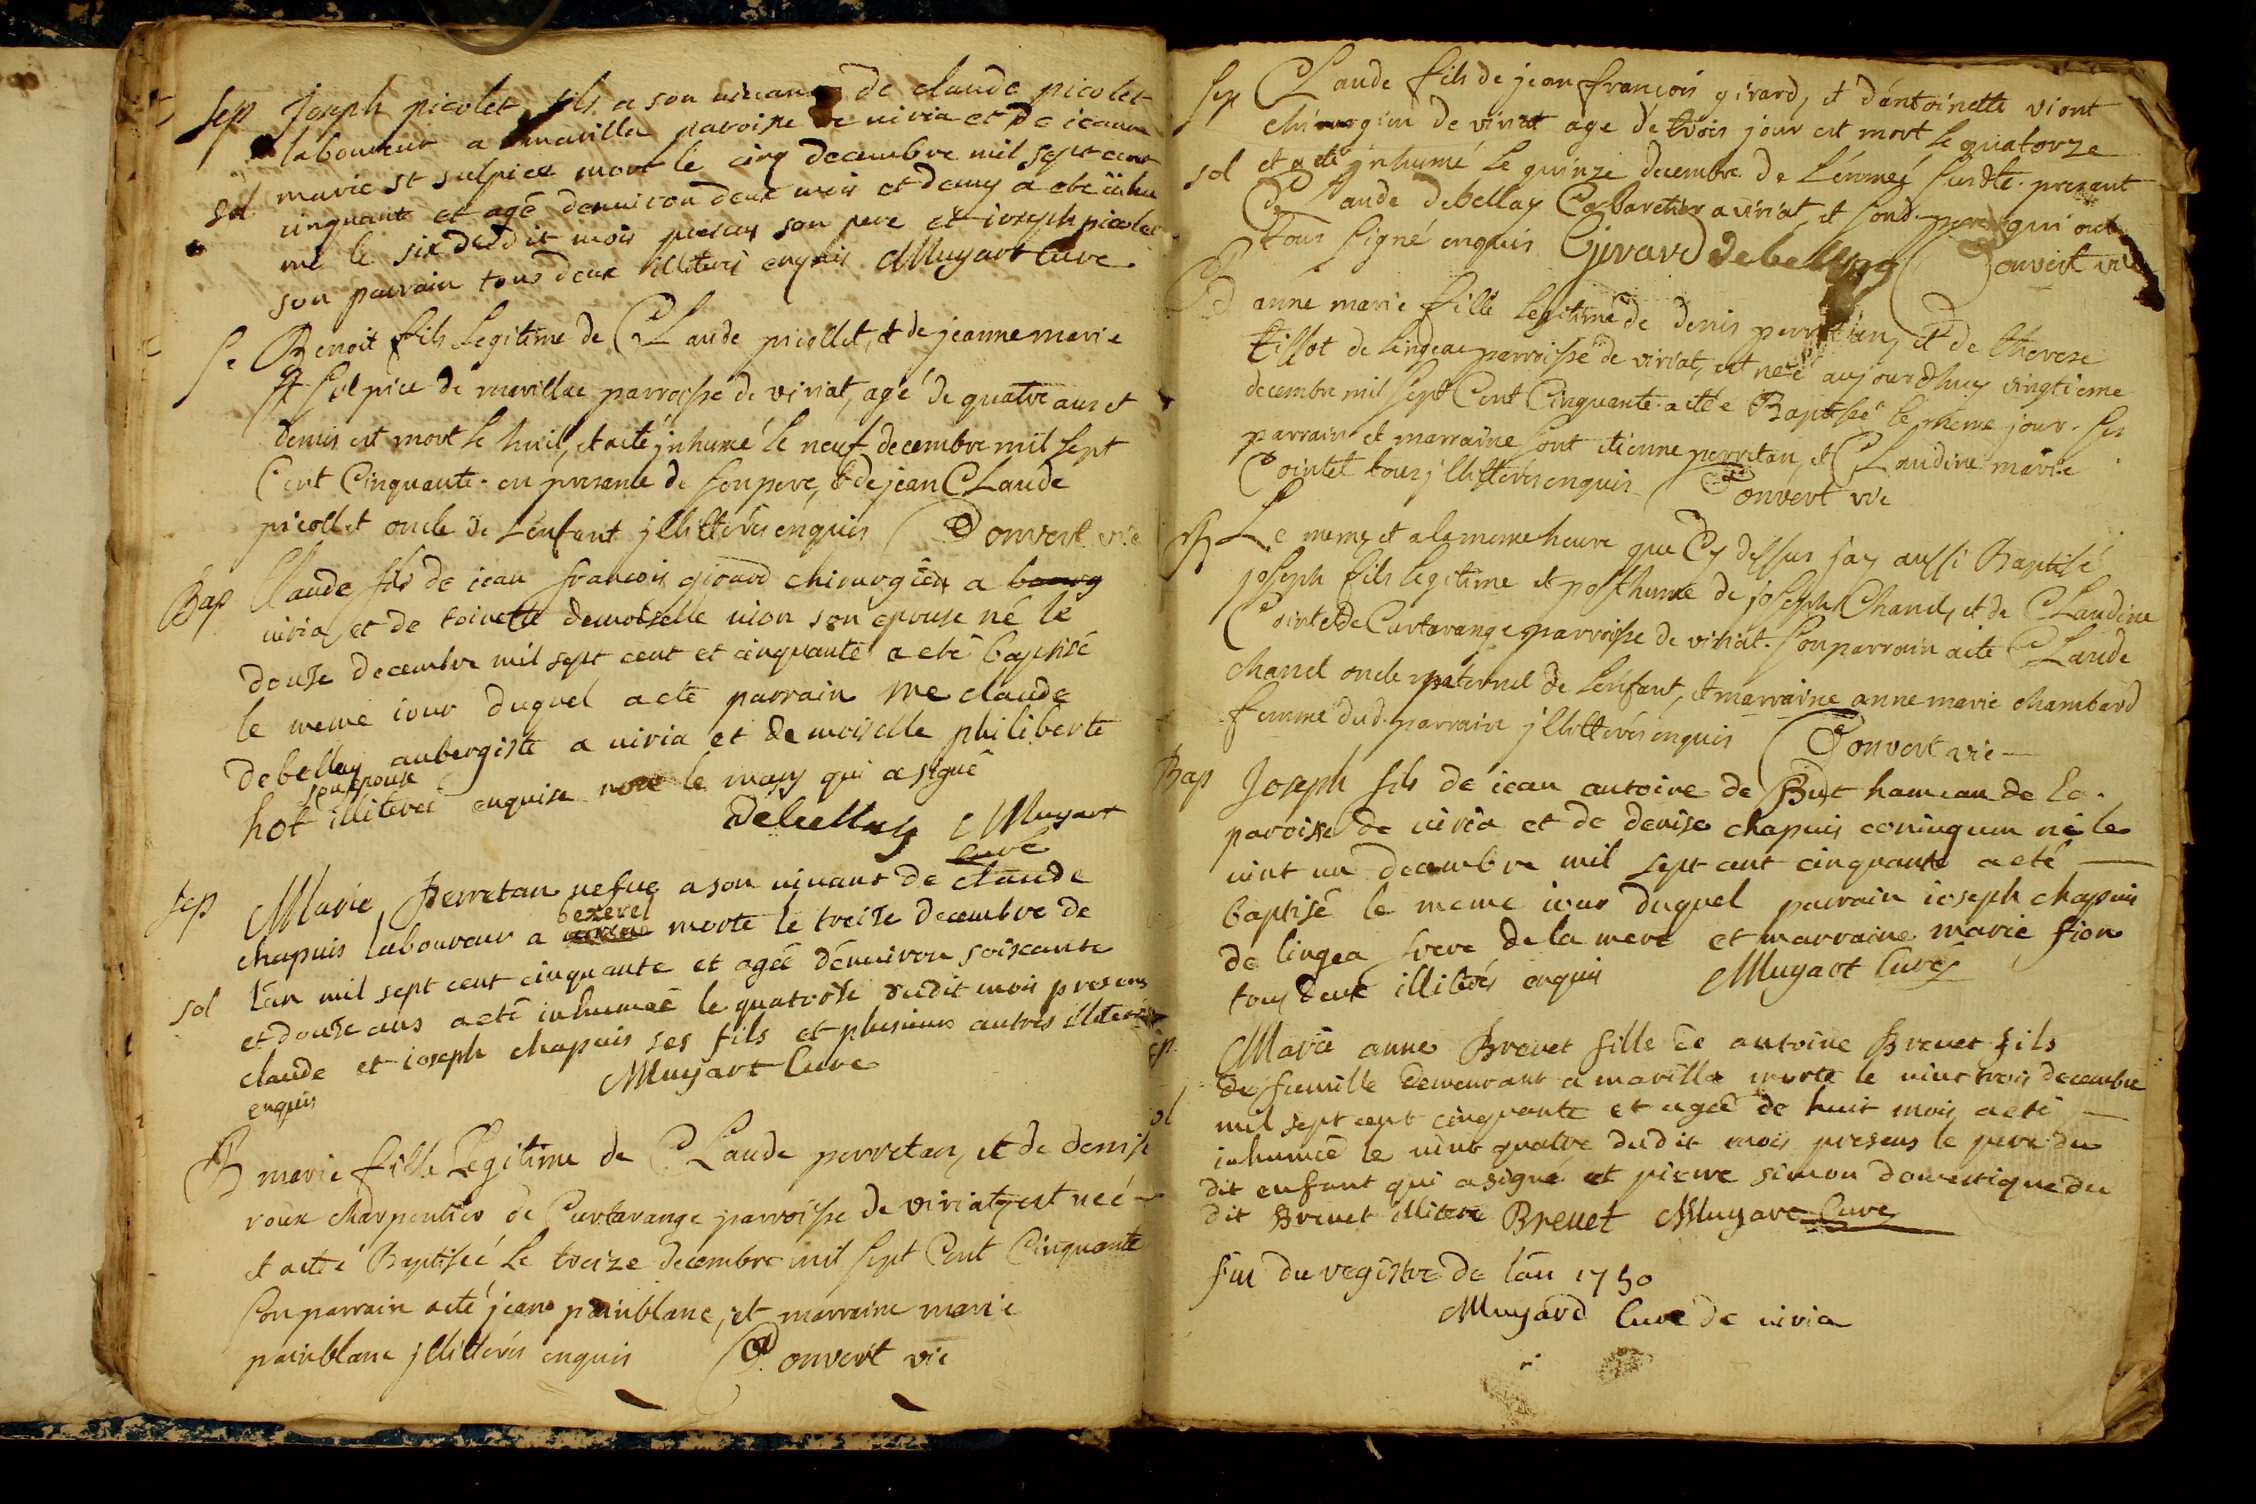 sep Joseph picolet fils a son vivant de claude picolet
laboureur a marilla paroisse de viria et de jeanne
marie st sulpice mort le cinq decembre mil sept cent
sol cinquante et agé denviron deux mois et demy a eté inhu
mé le six dudit mois presens son pere et ioseph picolet
son parrain tous deux illiterés enquis Muyart Curé
Se Benoit fils legitime de Claude picollet, et de jeanne marie
st sulpice de marillac parroisse de viriat, agé de quatre ans et
demis est mort le huit, et a eté jnhumé le neuf decembre mil sept
Cent Cinquante. en presence de son pere, et de jean Claude
picollet oncle de l'enfant jllitterés enquis Convert vic
Bap Claude fils de iean francois girard chirurgien a bourg
viria et de toinette demoiselle vion son epouse né le
douse decembre mil sept cent et cinquante a eté baptisé
le meme iour duquel a eté parrain me claude
debellay aubergiste a viria et demoiselle philiberte
son epouse
hot illiteree enquise non le mary qui a signé
debellay Muyart
curé
sep Marie Perretan vefve a son vivant de claude
bexerel
chapuis laboureur a morte le treise decembre de
sol l'an mil sept cent cinquante et agée d'environ soiscante
et douse ans a eté inhumée le quatorse dudit mois presens
claude et ioseph chapuis ses fils et plusieurs autres illiterés
enquis Muyart Curé
B marie fille Legitime de Claude perretan, et de denise
roux charpentier de Curtarange parroisse de viriat, est neé
et a eté Baptiseé le treize decembre mil sept Cent Cinquante
son parrain a eté jean painblanc, et marraine marie
painblanc jllitterés enquis Convert vic
Sep Claude fils de jean francois girard, et d'antoinette viont
chirurgien de viriat agé de trois jour est mort le quatorze
sol et a eté jnhumé le quinze decembre de l'anneé susdte. presant
Claude debellay Cabaretier a viriat, et sond. pere qui ont
tous signé enquis Girard debellay Convert vic
B anne marie fille legitime de denis perretan, et de therese
tillot de lingeac parroisse de viriat, est neé aujourdhuy vingtieme
decembre mil sept Cent Cinquante a eté Baptiseé le meme jour. ses
parrain et marraine sont etienne perretan, et Claudine marie
Cointet tous jllitterés enquis Convert vic
B Le meme et a la meme heure que Cy dessus jay aussi Baptisé
joseph fils legitime et posthume de joseph Chanel, et de Claudine
Cointet de Curtarange parroisse de viriat. son parrain a eté Claude
chanel oncle paternel de l'enfant, et marraine anne marie chambard
femme dud. parrain jllitterés enquis Convert vic
Bap Joseph fils de iean antoine de But hameau de la
paroisse de viria et de denise chapuis coniugum né le
vint un decembre mil sept cent cinquante a eté
baptisé le meme iour duquel parrain ioseph chapuis
de lingea frere de la mere et marraine marie fion
tous deux illiterés enquis Muyart Curé
sep Marie anne Brevet fille de antoine Brevet fils
de famille demeurant a marilla morte le vint trois decembre
sol mil sept cent cinquante et agée de huit mois a eté
inhumée le vint quatre dudit mois presens le pere du
dit enfant qui a signé et pierre simon domestique du
dit Brevet illiteré Brevet Muyart Curé
fin du registre de l'an 1750
Muyard Curé de viria